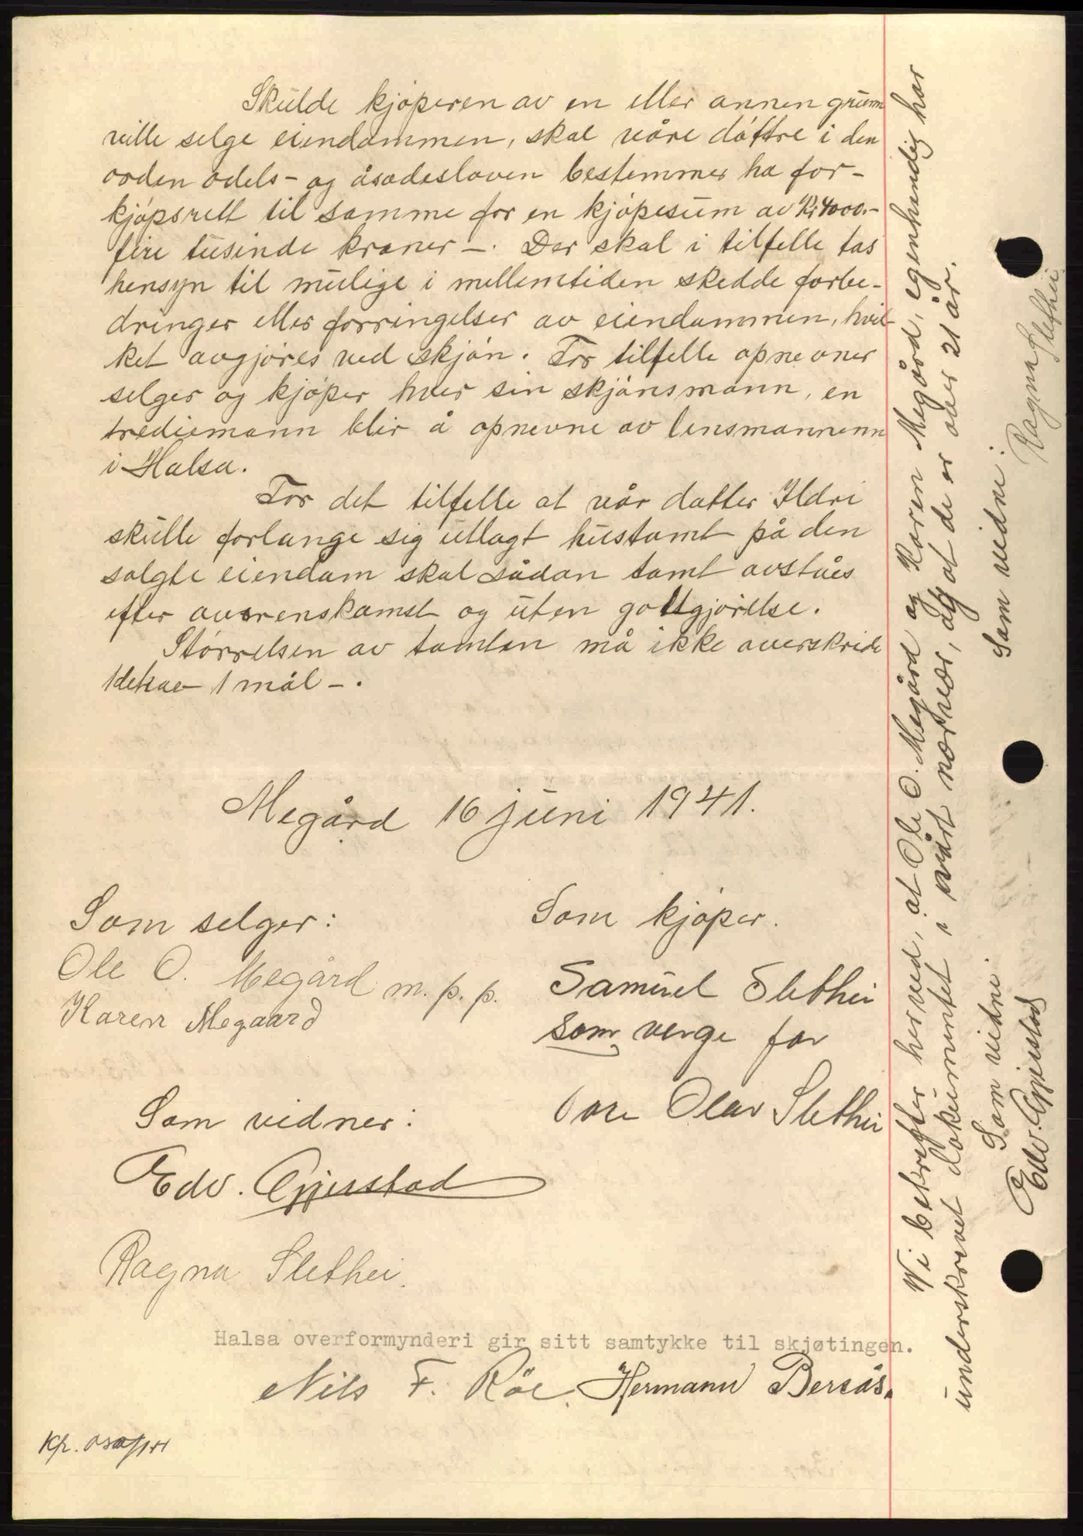 Skulde kjøperen av en eller annen grunn
ville selge eiendommen, skal våre døttre i den
orden odels- og åsædesloven bestemmer ha for-
kjøpsrett til samme for en kjøpesum av Kr 4000.-
fire tusinde kroner -. Der skal i tilfelle tas
hensyn til mulige i mellemtiden skedde forbe-
dringer eller forringelser av eiendommen, hvil-
ket avgjøres ved skjøn. For tilfelle opnevner
selger og kjøper hver sin skjønsmann, en
trediemann blir å opnevne av lensmannenn
i Halsa.
For det tilfelle at vår datter Ildri
skulle forlange sig utlagt hustomt på den
solgte eiendom skal sådan tomt avståes
efter overenskomst og uten gottgjørelse.
Størrelsen av tomten må ikke overskride
1 dekar 1 mål -.
Megård 16 juni 1941.
Som selger:
Ole O. Megård m. p. p.
Karen Megaard
Som kjøper.
Samuel Slethei
som verge for
Tore Olav Slethei
Som vidner:
Edv. Gjerstad
Ragna Slethei.
Halsa overformynderi gir sitt samtykke til skjøtingen.
Nils F. Røe. Hermann Bersås.
Vi bekrefter herved, at Ole O. Megård og Karen Megård, egenhendig har
underskrevet dokumentet i vårt nærvær, og at de er over 21 år.
Som vidne:
Edv. Gjerstad
Som vidne:
Ragna Slethei